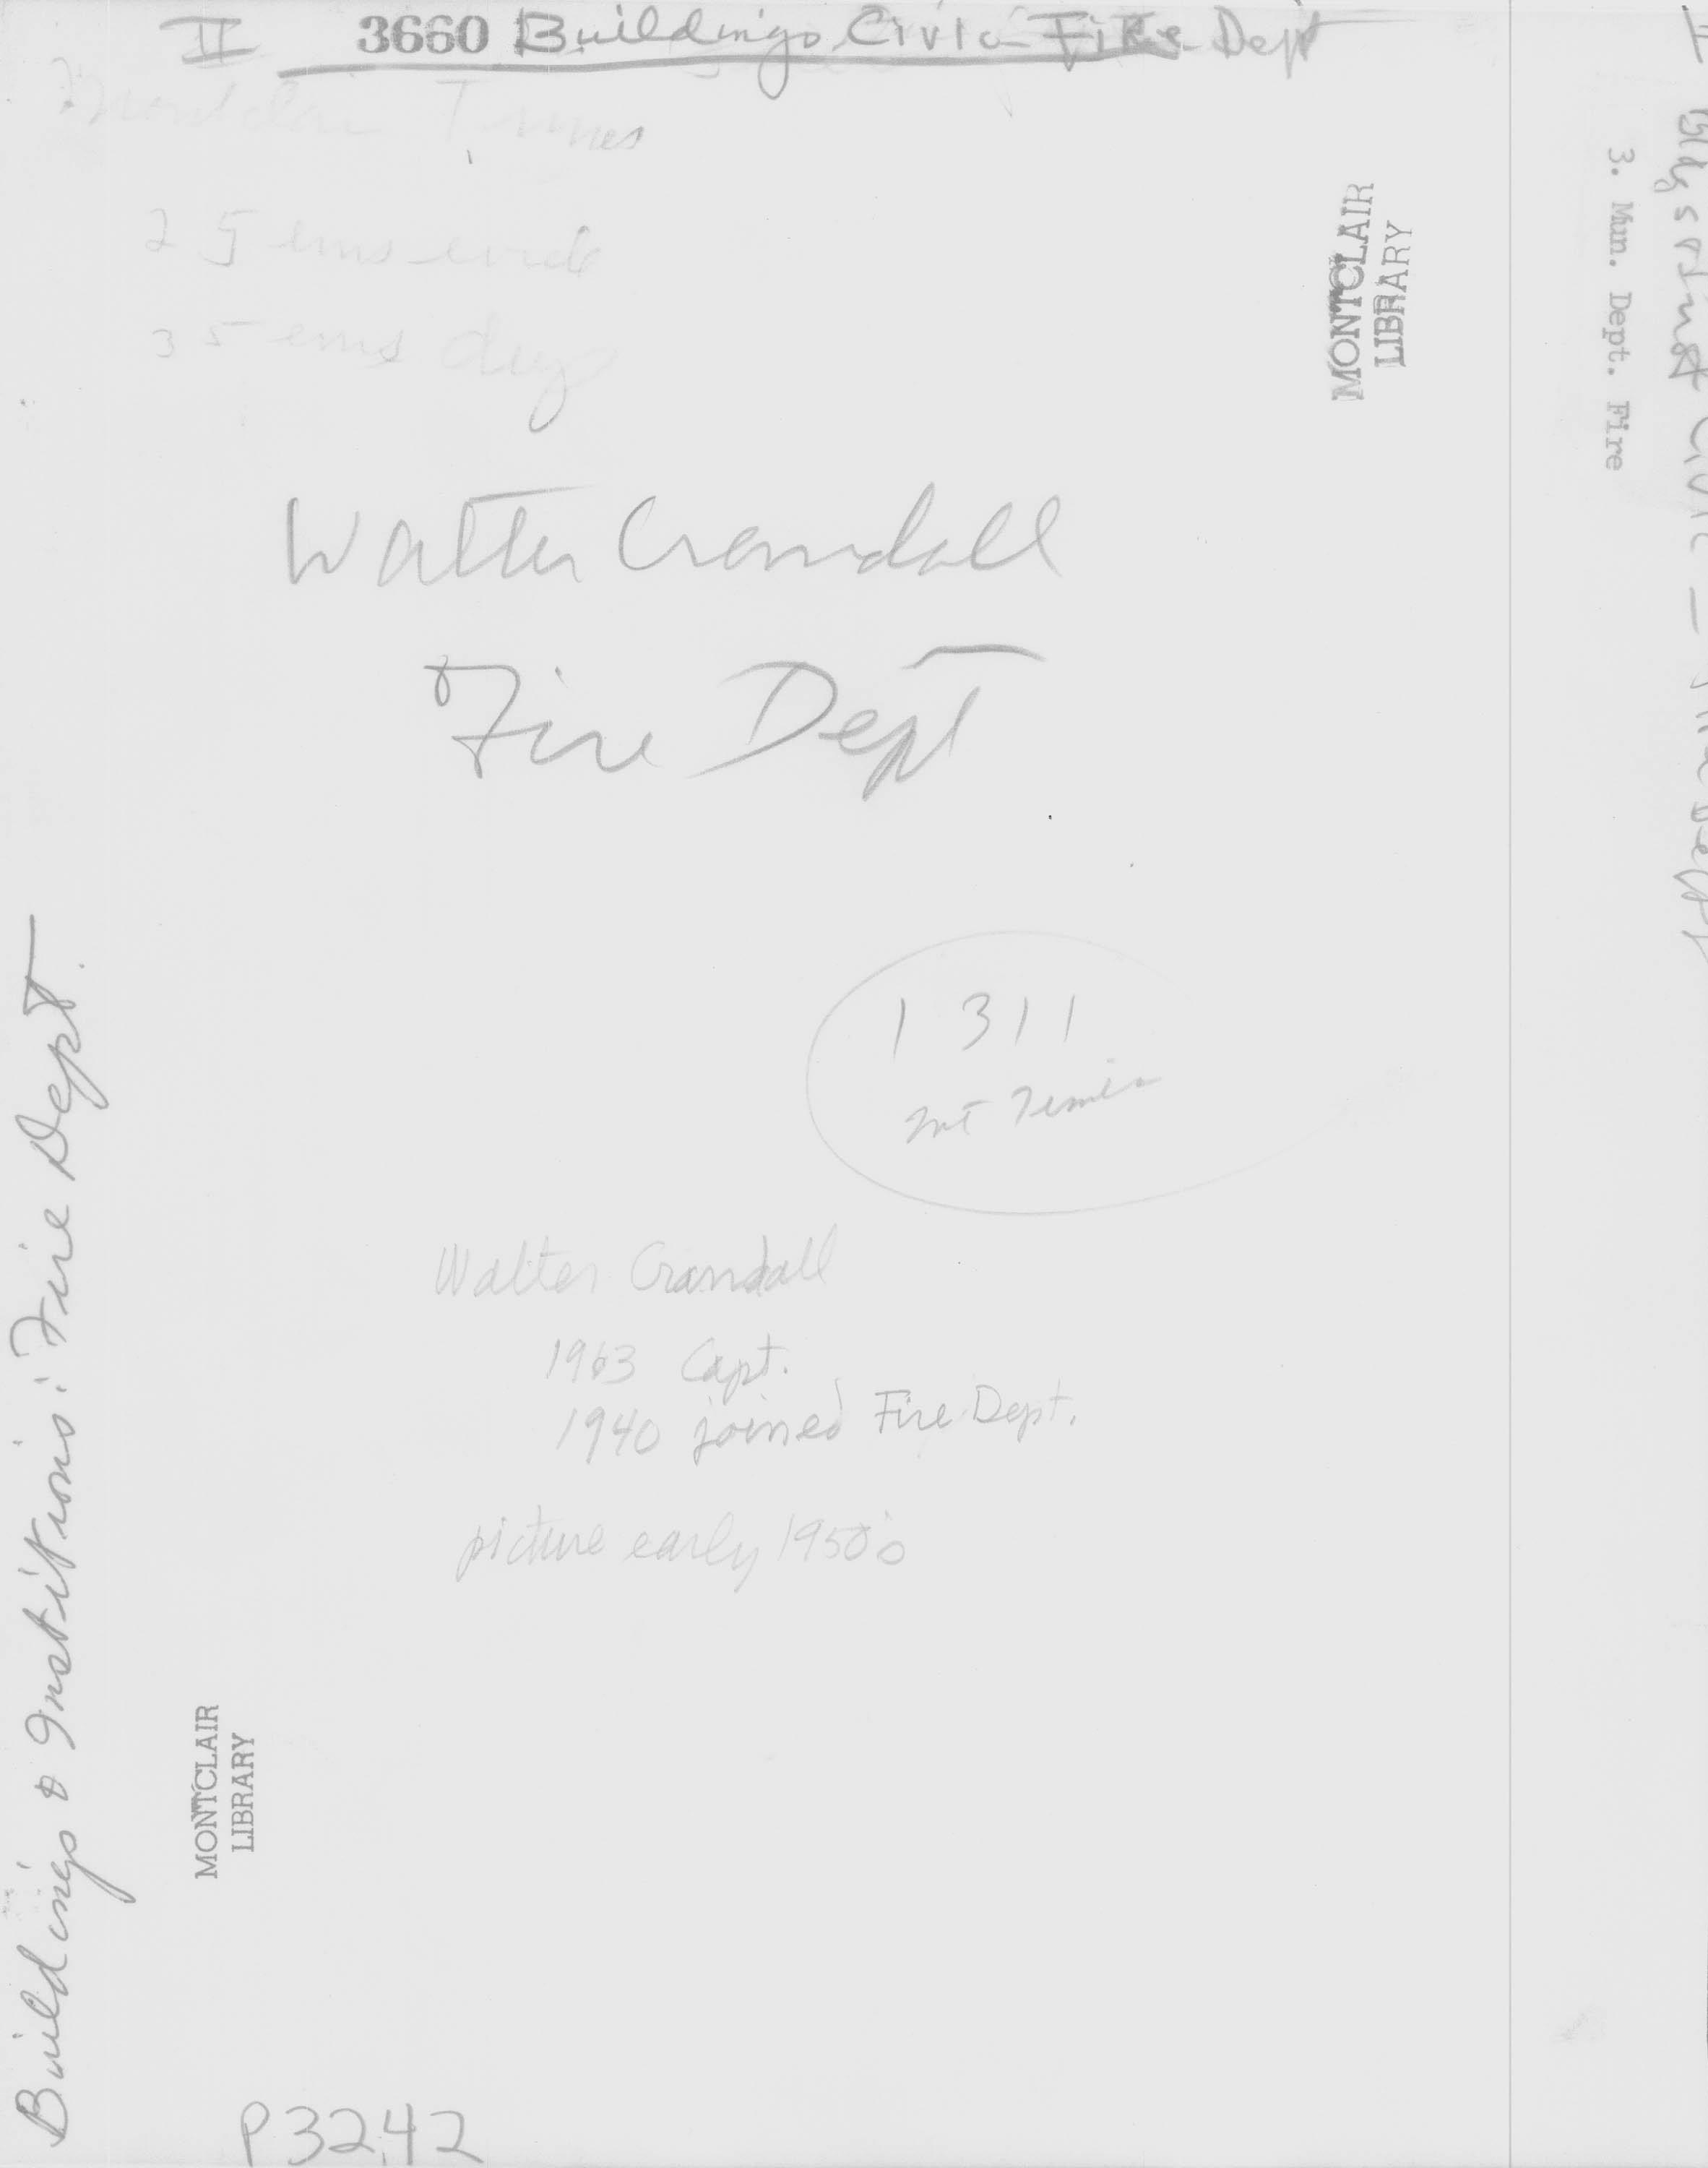 II 3660 Buildings Civic Fire Dept
Montclair Times
25 ems wide
35 ems deep
MONTCLAIR
LIBRARY
3. Mun. Dept. Fire
Walter Crandall
Fire Dept
1311
Mt Times
Walter Crandall
1963 Capt.
1940 joined Fire Dept.
picture early 1950's
Buildings & Institions: Fire Dept.
MONTCLAIR
LIBRARY
P3242